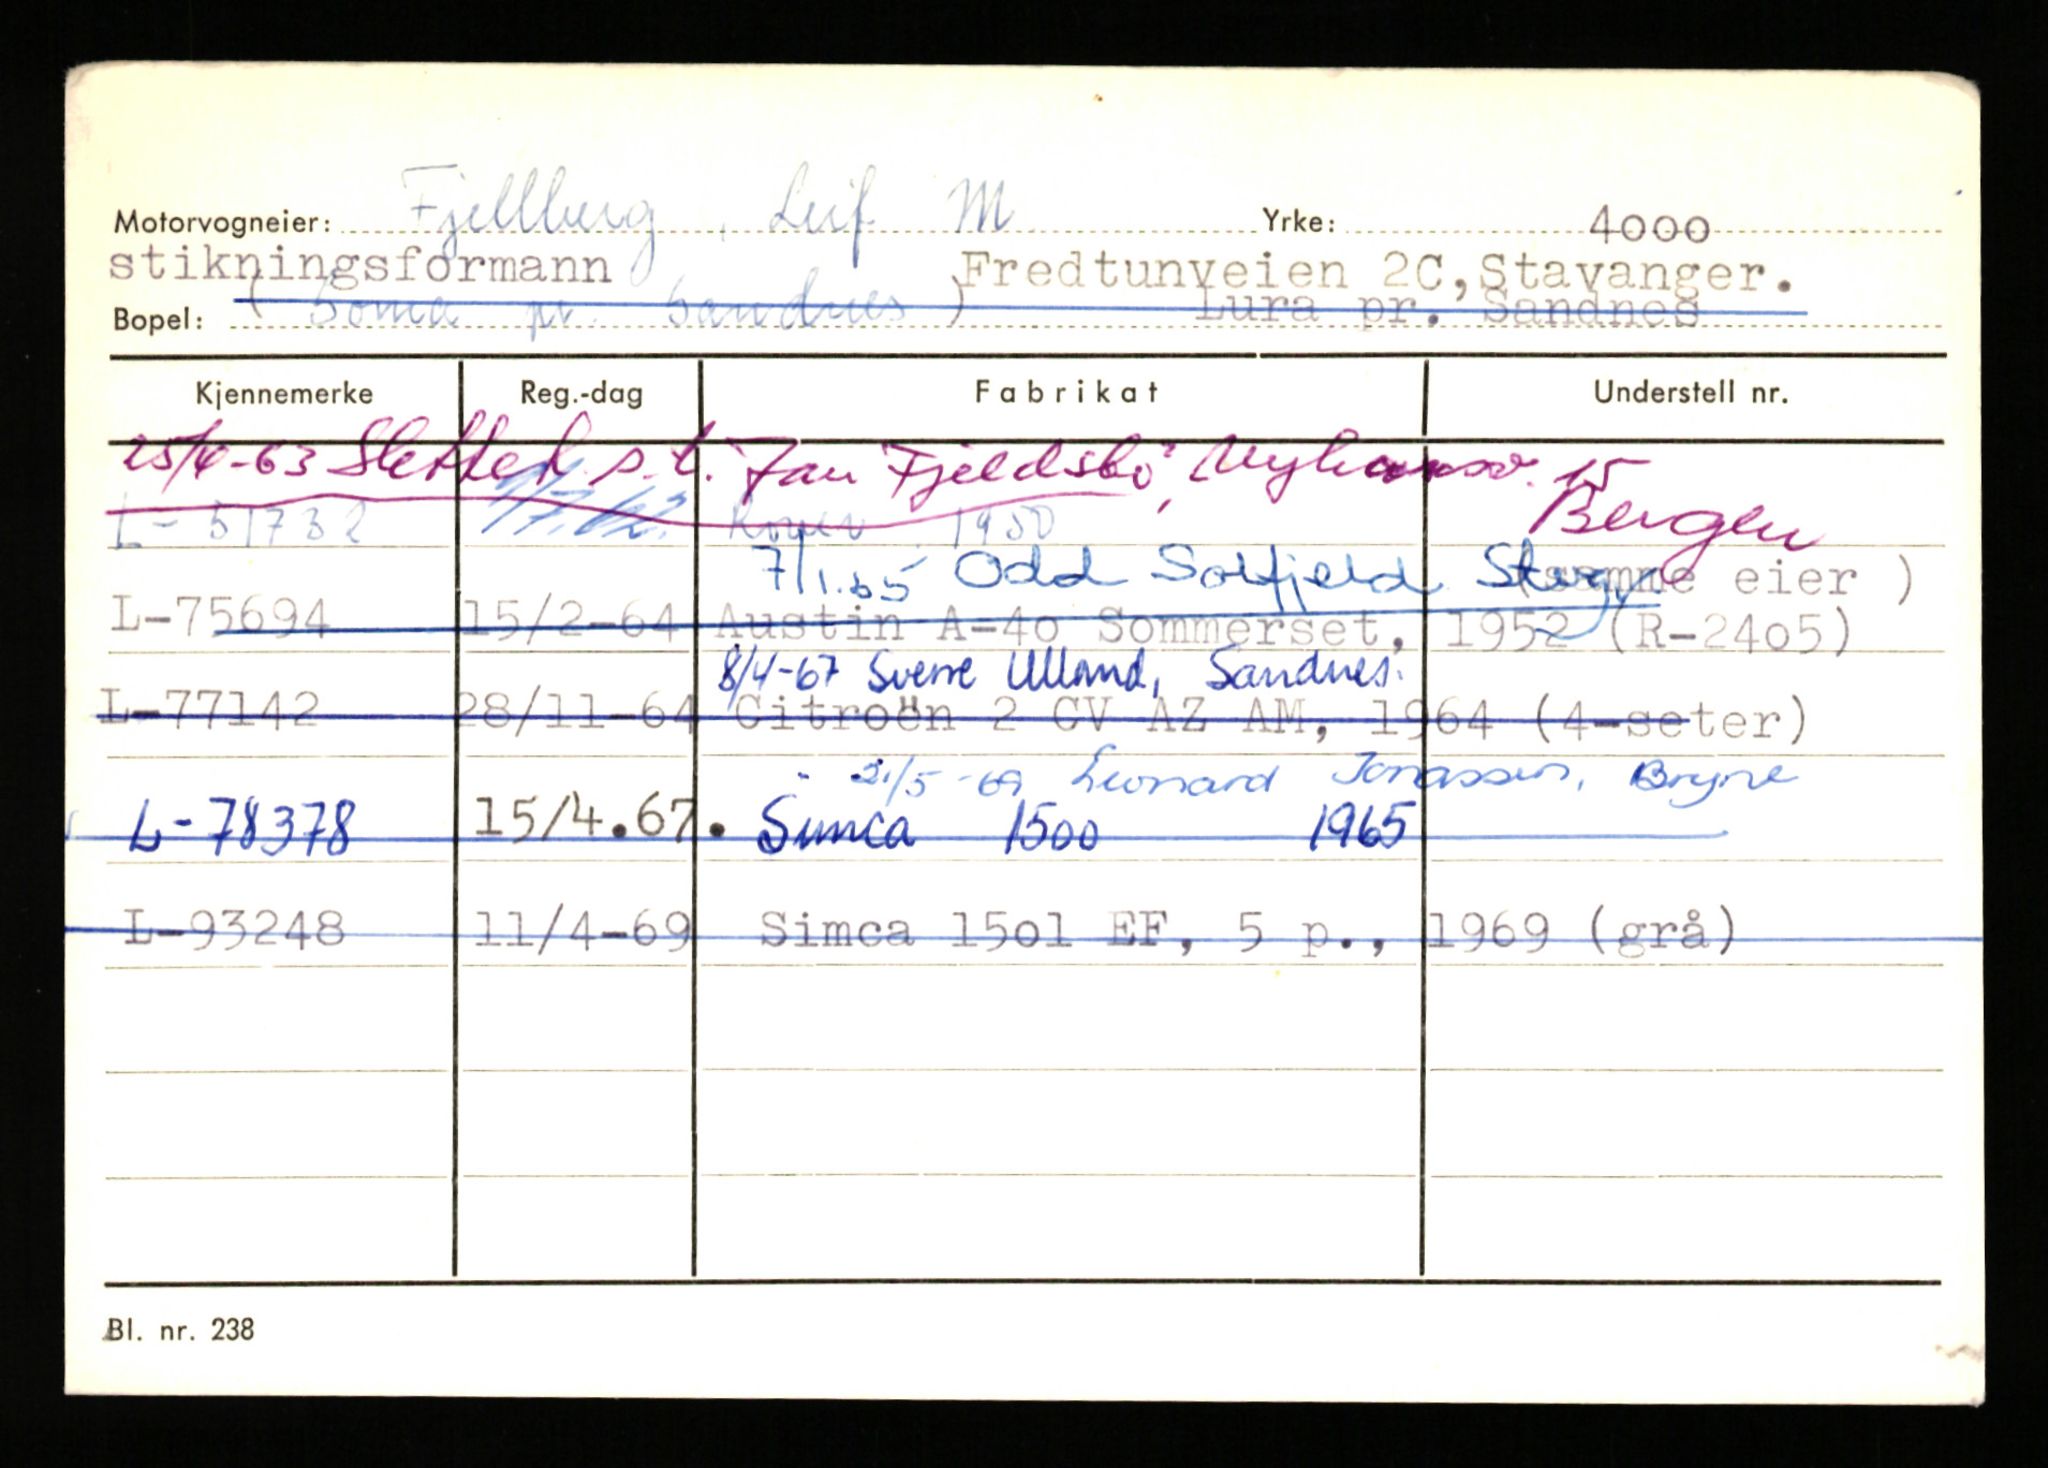 Motorvogneier: Fjellberg, Leif M Yrke: 4000
stikningsformann Fredtunveien 2C, Stavanger.
Bopel: (Soma pr. Sandnes) Lura pr. Sandnes
Kjennemerke Reg.-dag Fabrikat Understell nr.
25/4-63 Slettet s.t. Jan Fjeldsbö, 15
Bergen
L-51732 1950
7/1.65 Odd Solfjeld Stvgr (samme eier )
L-75694 15/2-64 Austin A-4o Sommerset, 1952 (R-24o5)
8/4-67 Sverre Ulland, Sandnes.
L-77142 28/11-64 Citroën 2 CV AZ AM, 1964 (4-seter)
21/5-69 Leonard Jonassen, Bryne
L-78378 15/4.67. Simca 1500 1965
L-93248 11/4-69 Simca 15o1 EF, 5 p., 1969 (grå)
Bl. nr. 238